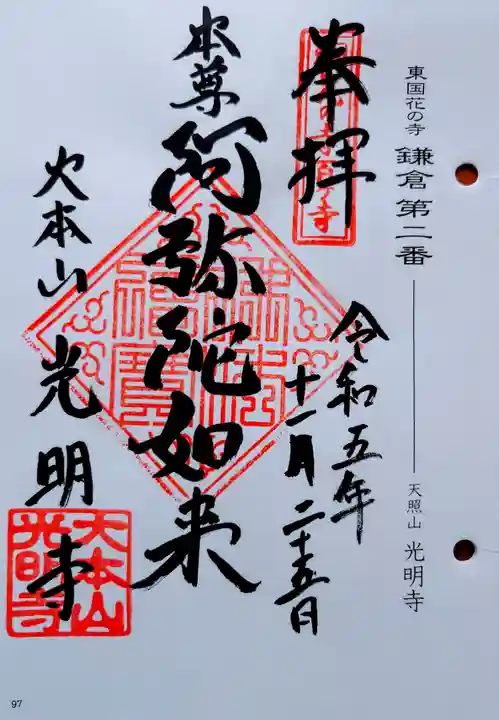 東国花の寺 鎌倉第二番
天照山 光明寺
奉拝
令和五年
十一月二十五日
本尊
阿弥陀如来
大本山 光明寺
大本山
光明寺
97